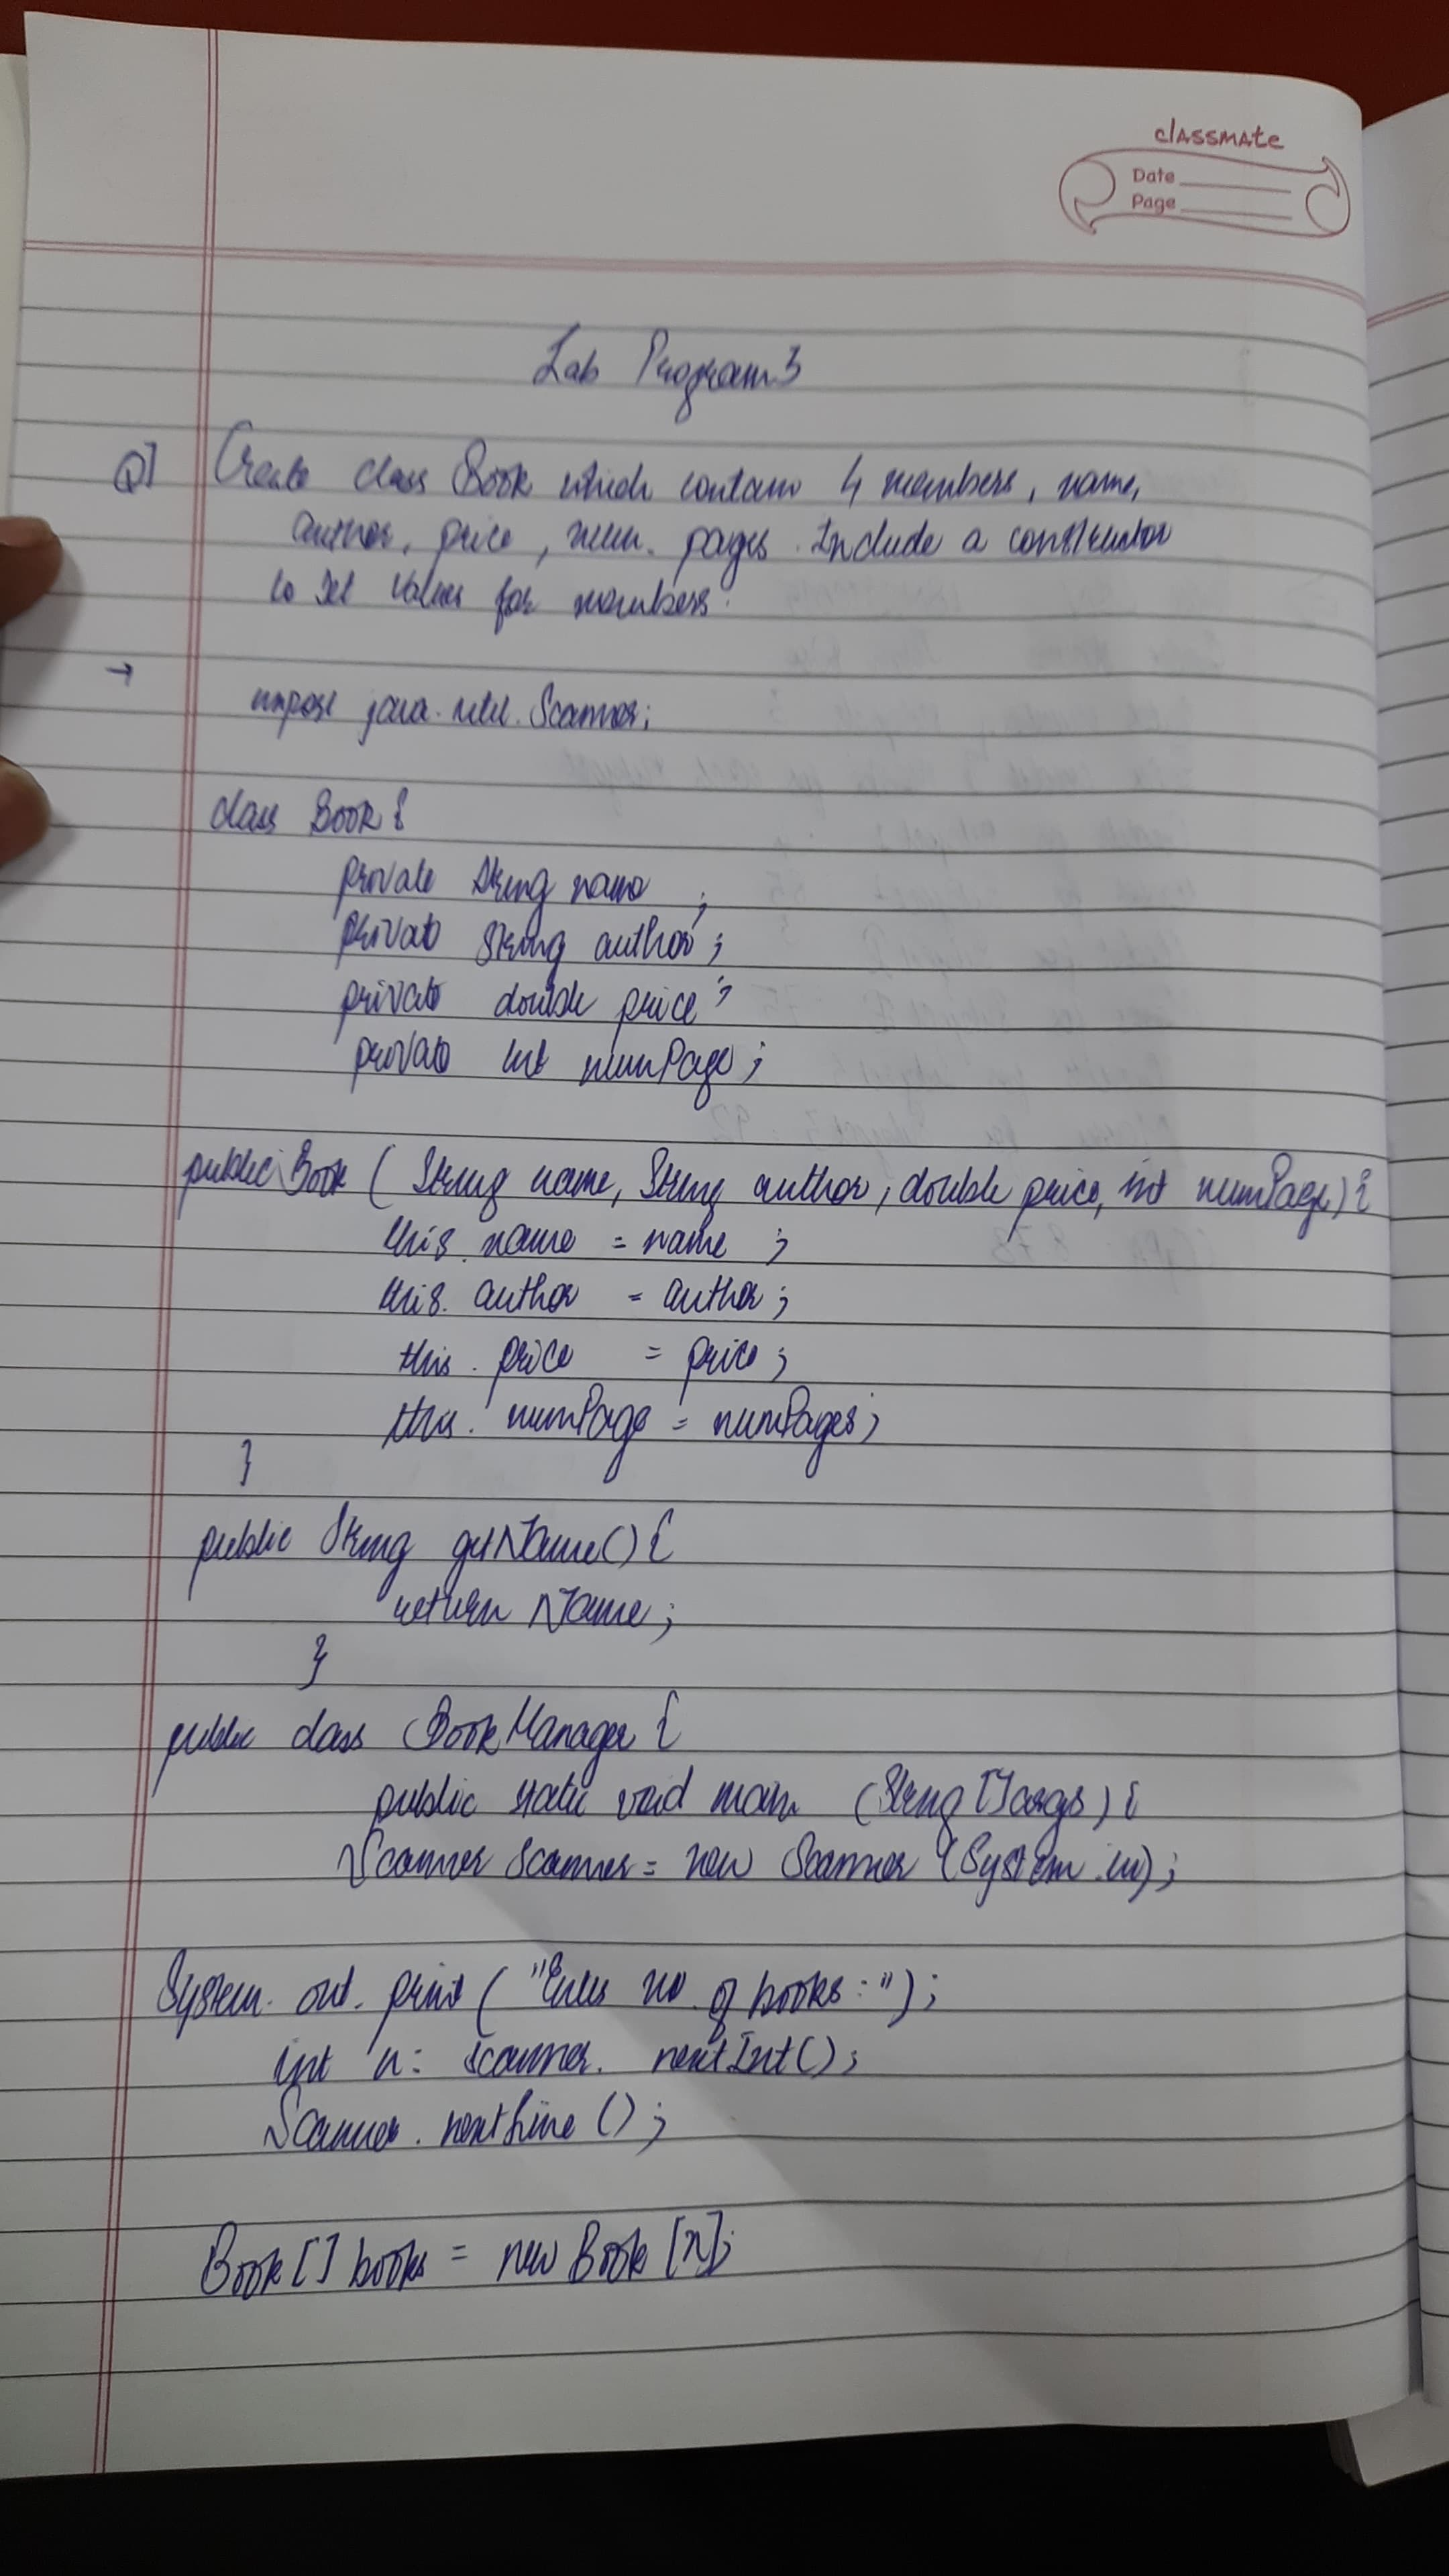 classmate
Date
Page
Lab Program 3
Q] Create class Book which contain 4 members, name,
author, price, num. pages. Include a constructor
to set values for members.
→
import java.util.Scanner;
class Book {
private String name ;
private String author ;
private double price ;
private int numPage ;
public Book ( String name, String author, double price, int numPage) {
this. name = name ;
this. author = author ;
this. price = price ;
this. numPage = numPages ;
}
public String getName() {
return Name ;
}
public class BookManager {
public static void main (String [] args) {
Scanner scanner = new Scanner (System.in) ;
System. out. print ( "Enter no. of books : ") ;
int n = scanner. nextInt() ;
Scanner. nextLine () ;
Book [] books = new Book [n];